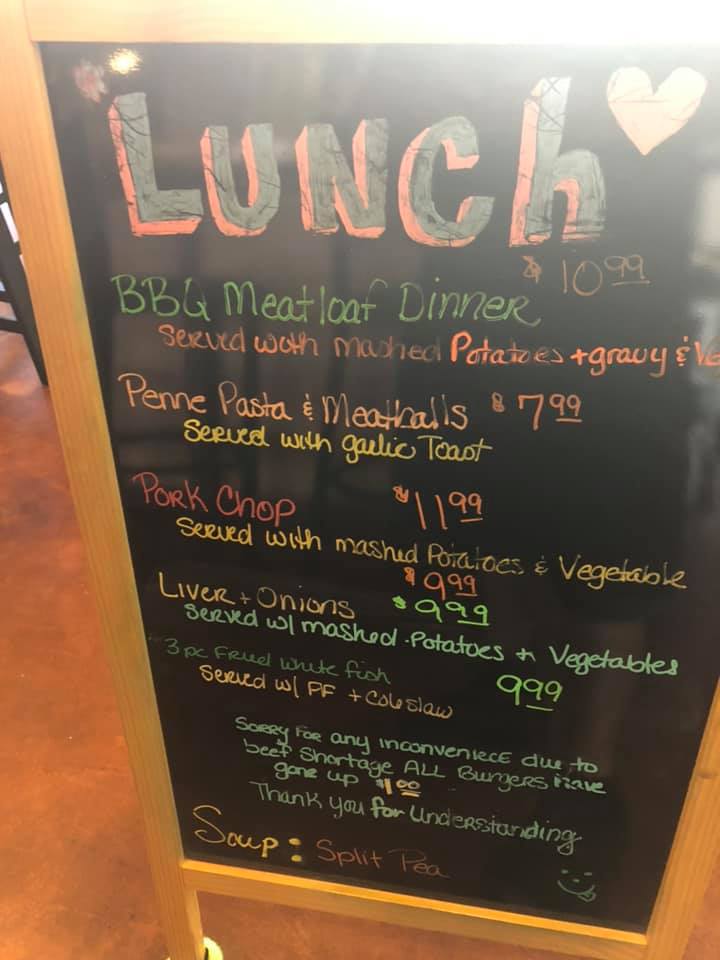 LUNCh
$10.99
BBQ Meatloaf Dinner
Served with mashed Potatoes + gravy & Ve
Penne Pasta & Meatballs $7.99
Served with garlic Toast
Pork Chop $11.99
Served with mashed Potatoes & Vegetable
$9.99
Liver + Onions $9.99
Served w/ mashed Potatoes + Vegetables
3 pc Fried white fish
999
Served w/ FF + Coleslaw
Sorry For any inconveniece due to
beef Shortage ALL Burgers Have
gone up $1.00
Thank you for Understanding
Soup: Split Pea